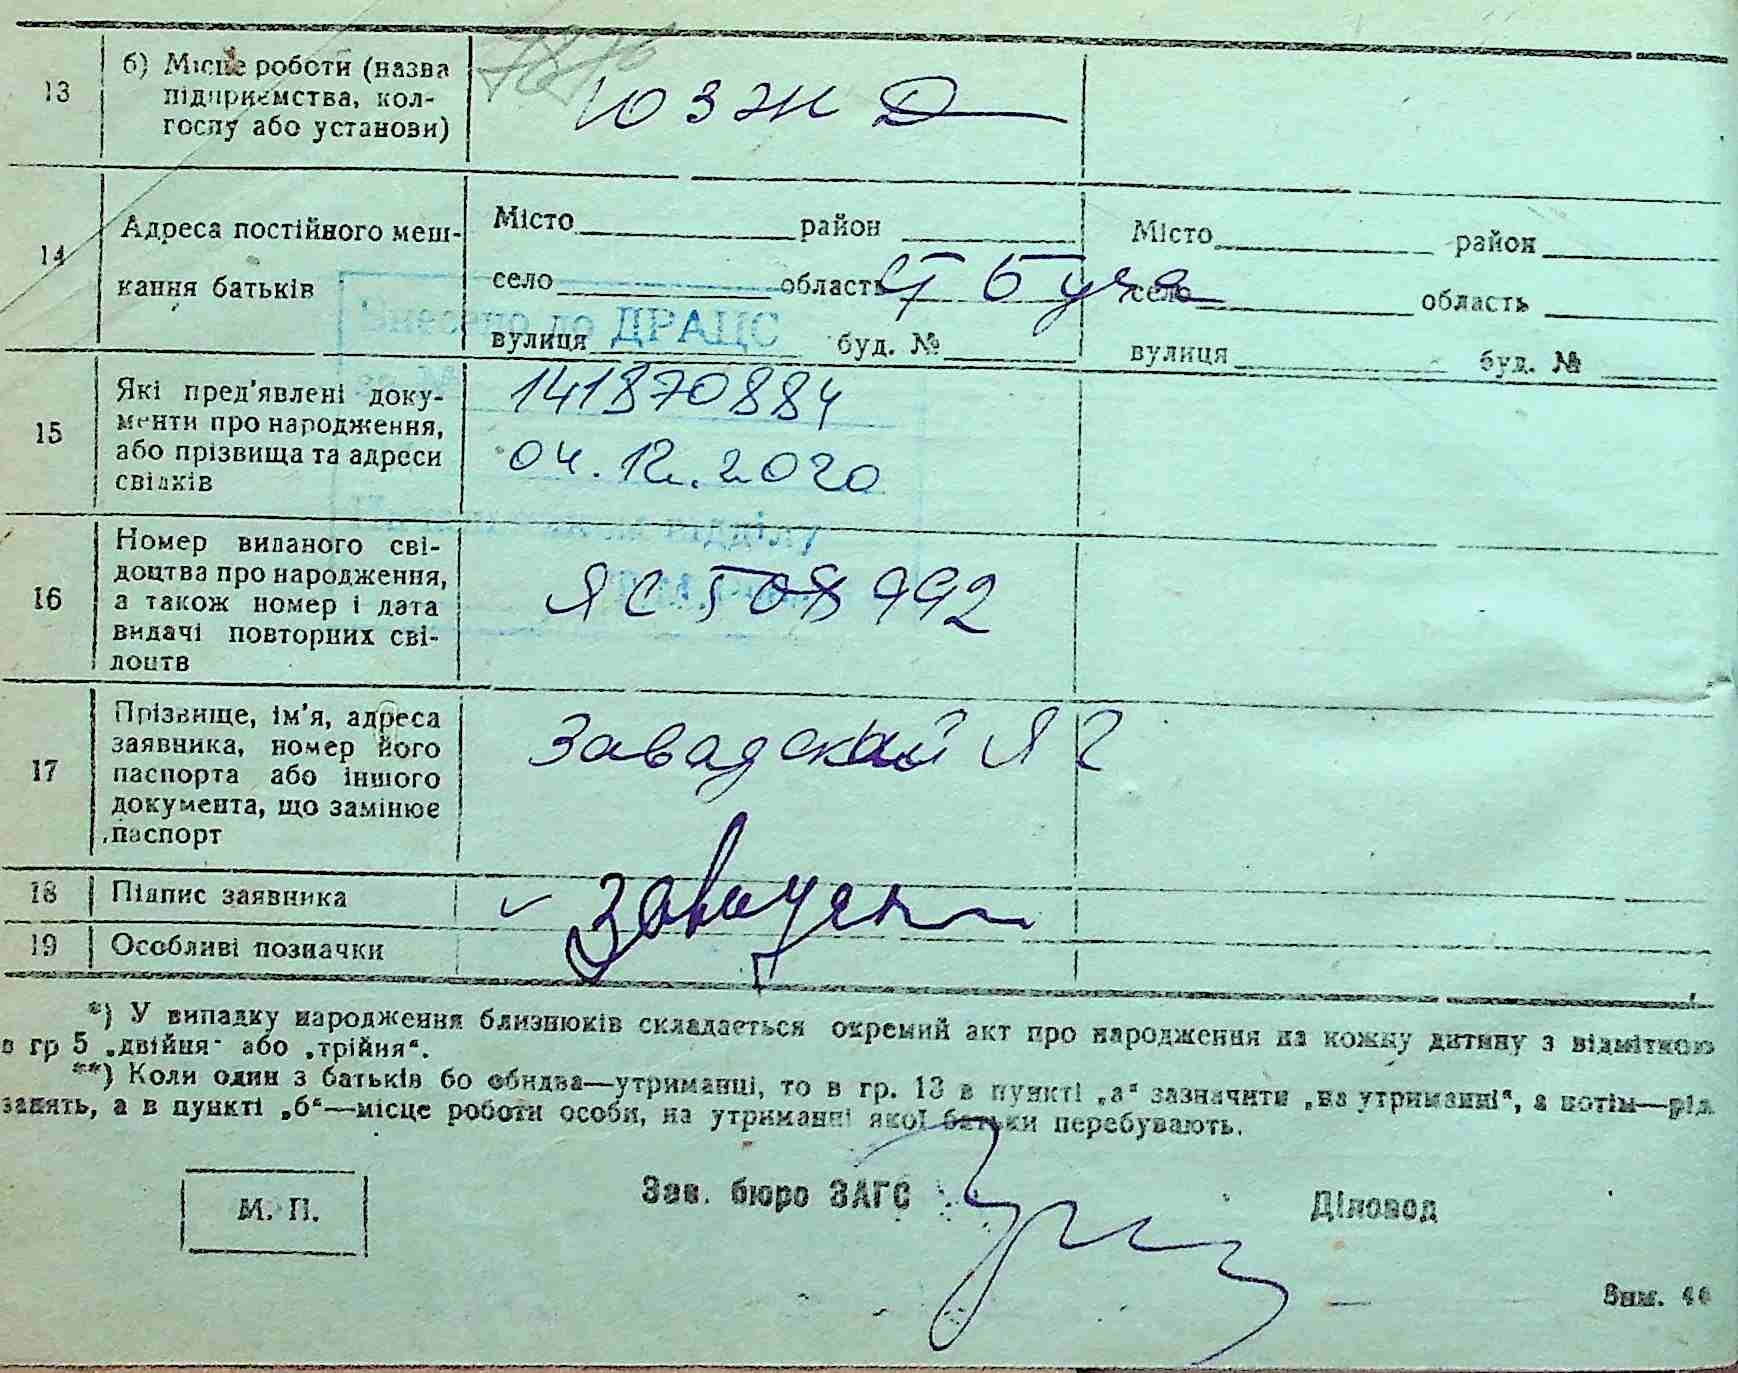 13
б) Місце роботи (назва
підприємства, кол-
госпу або установи)
ЮЗЖД
14
Адреса постійного меш-
кання батьків
Місто район
село область
вулиця буд. №
ст Буча
Місто район
село область
вулиця буд. №
Внесено до ДРАЦС
15
Які пред'явлені доку-
менти про народження,
або прізвища та адреси
свідків
141870884
04.12.2020
відділу
16
Номер виданого сві-
доцтва про народження,
а також номер і дата
видачі повторних сві-
доцтв
ЯС 508992
17
Прізвище, ім'я, адреса
заявника, номер його
паспорта або іншого
документа, що замінює
паспорт
Завадский Я Г
18
Підпис заявника
19
Особливі позначки
*) У випадку народження близнюків складається окремий акт про народження на кожну дитину з відміткою
в гр 5 „двійня" або „трійня".
**) Коли один з батьків бо обидва—утриманці, то в гр. 13 в пункті „а" зазначити „на утриманні", а потім—рід
занять, а в пункті „б"—місце роботи особи, на утриманні якої батьки перебувають.
М. П.
Зав. бюро ЗАГС
Діловод
Зам. 46